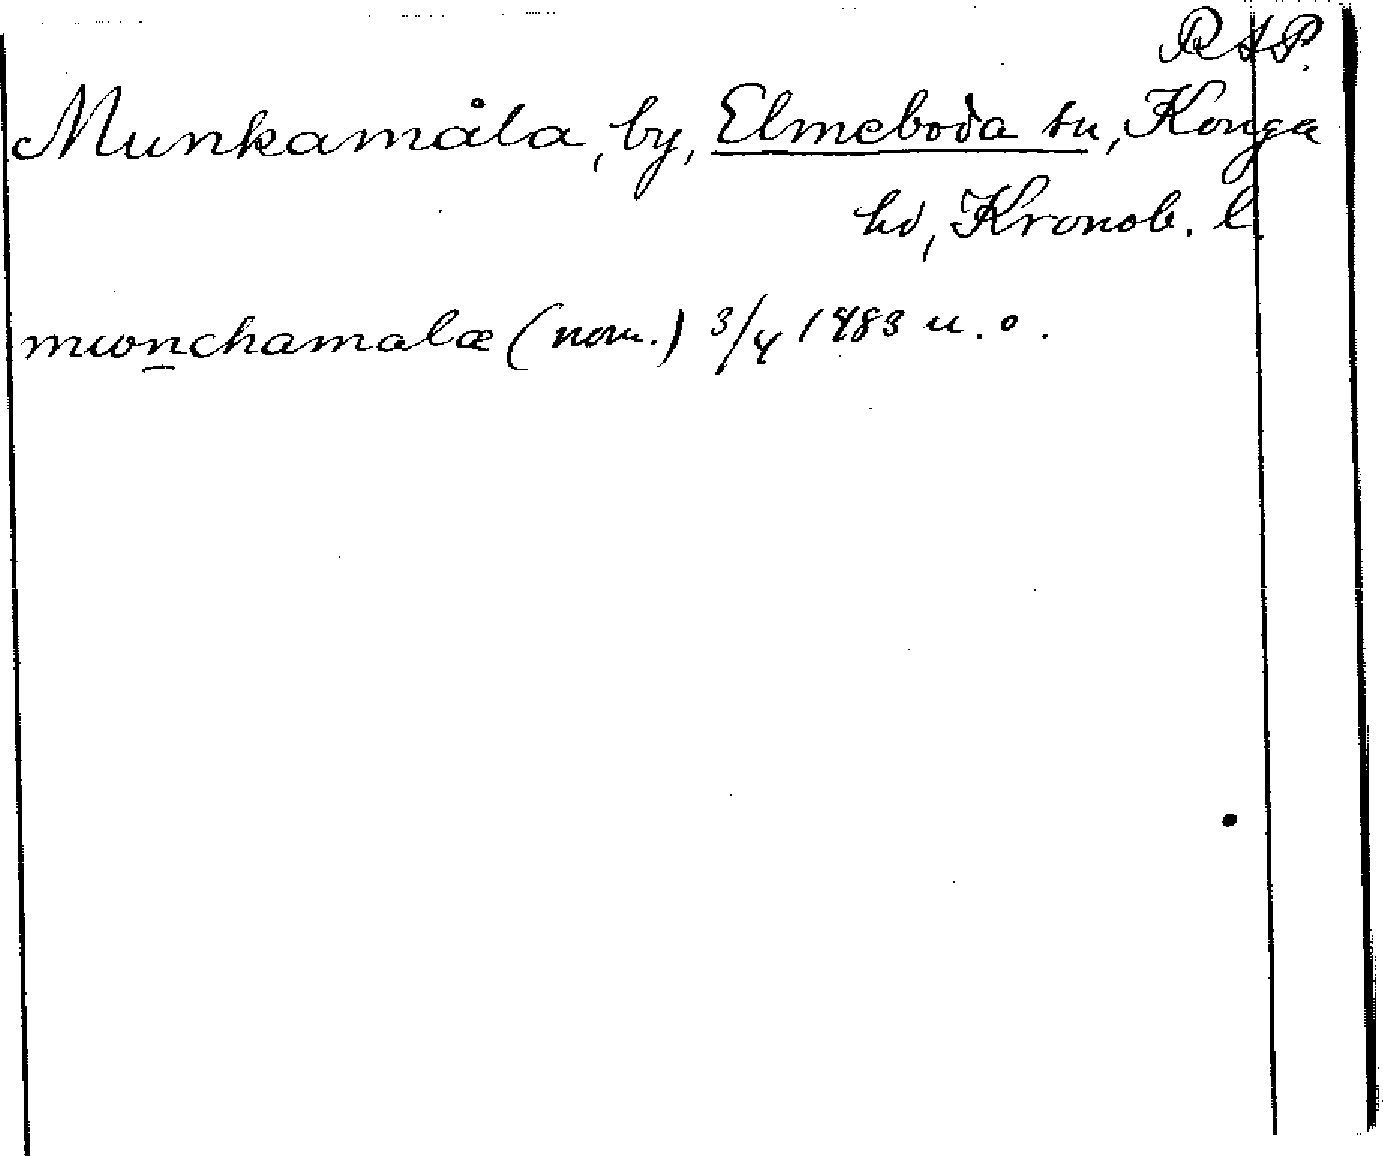 RAP.
Munkamåla, by, Elmeboda sn, Konga
hd, Kronob. l.
mwnchamalæ (nom.) 3/4 1483 u. o.